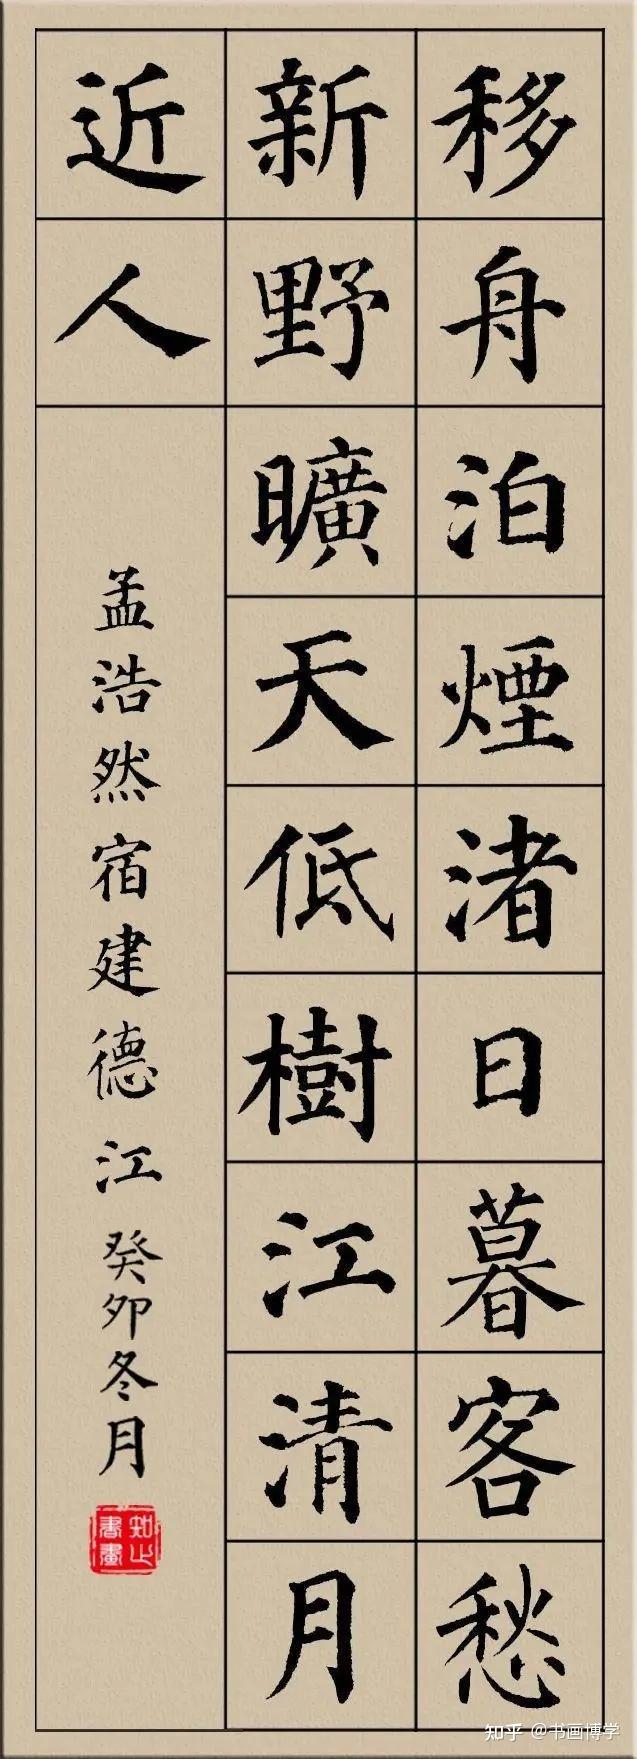 移舟泊煙渚日暮客愁
新野曠天低樹江清月
近人
孟浩然宿建德江 癸卯冬月
知止書畫
知乎 @书画博学